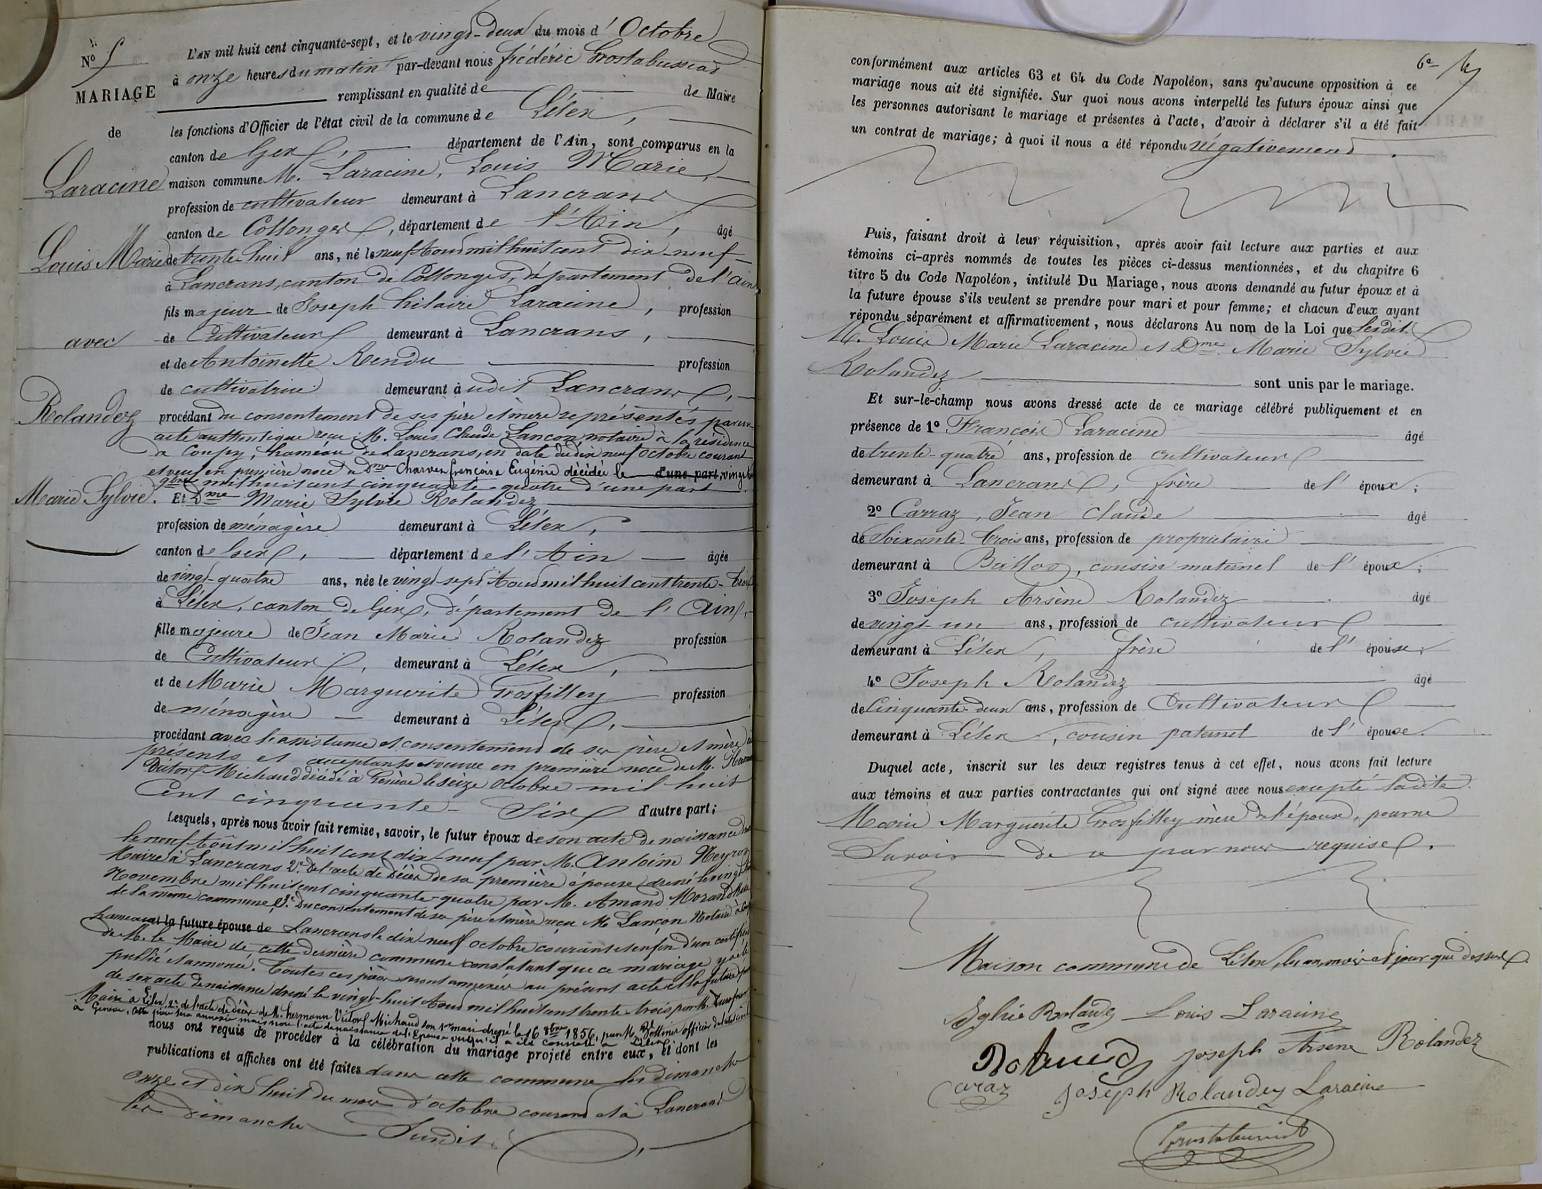 N° 5
MARIAGE
de
Laracine
Louis Marie
avec
Rolandez
Marie Sylvie.
L'AN mil huit cent cinquante-sept, et le vingt-deux du mois d'Octobre
à onze heures du matin par-devant nous frédéric Grostabussiat
remplissant en qualité de de Maire
les fonctions d'Officier de l'état civil de la commune de Lélex,
canton de Gex, département de l'Ain, sont comparus en la
maison commune M. Laracine, Louis Marie,
profession de cultivateur demeurant à Lancrans
canton de Collonges, département de l'Ain, âgé
de trente huit ans, né le neuf Août mil huit cent dix-neuf
à Lancrans, canton de Collonges, département de l'ain
fils majeur de Joseph hilaire Laracine, profession
de Cultivateur demeurant à Lancrans,
et de Antoinette Rendu profession
de cultivatrice demeurant à udit Lancrans,
procédant du consentement de ses père et mère représentés par un
acte authentique reçu M. Louis Claude Lançon notaire à la résidence
à Coupy, hameau de Lancrans, en date du dix neuf octobre courant
et veuf en première noce de Dme Charvet françoise Eugénie décédée le d'une part vingt
9bre mil huit cent cinquante-quatre d'une part
Et Dme Marie Sylvie Rolandez
profession de ménagère demeurant à Lélex,
canton de Gex, département de l'Ain âgée
de vingt-quatre ans, née le vingt sept Août mil huit cent trente-trois
à Lélex, canton de Gex, département de l'Ain,
fille majeure de Jean Marie Rolandez profession
de Cultivateur, demeurant à Lélex,
et de Marie Marguerite Grosfilley profession
de ménagère demeurant à Lélex,
procédant avec l'assistance et consentement de ses père et mère ici
présents et acceptants et veuve en première noce de M.
Victor Michaud décédé à Genève le seize octobre mil huit
Cent cinquante-Six d'autre part;
Lesquels, après nous avoir fait remise, savoir, le futur époux de son acte de naissance
le neuf Août mil huit cent dix-neuf par M. Antoine Neyrod
Maire à Lancrans 2° de l'acte de décès de sa première épouse dressé le vingt
Novembre mil huit cent cinquante-quatre par M. Amand Morand Maire
de la même commune, 3° Du consentement de ses père et mère reçu Me Lançon Notaire à Coupy
hameau et la future épouse de Lancrans le dix neuf octobre courant et enfin d'un certificat
de M. le Maire de cette dernière commune constatant que ce mariage y a été
publié et annoncé. Toutes ces pièces sont annexées au présent acte et la future épouse
de son acte de naissance dressé le vingt-huit Août mil huit cent trente-trois par M.
Maire à Lélex 2° de l'acte de décès de Mr hermann Victor Michaud son 1er mari dressé le 16 8bre 1856, par M. officier de l'état civil
à Genève, cette pièce sera annexée mais non l'acte de naissance de l'épouse à Lélex.
nous ont requis de procéder à la célébration du mariage projeté entre eux, et dont les
publications et affiches ont été faites dans cette commune les dimanche
onze et dix huit du mois d'octobre courant et à Lancrans
les dimanche Susdits,
6e
conformément aux articles 63 et 64 du Code Napoléon, sans qu'aucune opposition à ce
mariage nous ait été signifiée. Sur quoi nous avons interpellé les futurs époux ainsi que
les personnes autorisant le mariage et présentes à l'acte, d'avoir à déclarer s'il a été fait
un contrat de mariage; à quoi il nous a été répondu négativement.
Puis, faisant droit à leur réquisition, après avoir fait lecture aux parties et aux
témoins ci-après nommés de toutes les pièces ci-dessus mentionnées, et du chapitre 6
titre 5 du Code Napoléon, intitulé Du Mariage, nous avons demandé au futur époux et à
la future épouse s'ils veulent se prendre pour mari et pour femme; et chacun d'eux ayant
répondu séparément et affirmativement, nous déclarons Au nom de la Loi que lesdits
M. Louis Marie Laracine et Dme Marie Sylvie
Rolandez sont unis par le mariage.
Et sur-le-champ nous avons dressé acte de ce mariage célébré publiquement et en
présence de 1° François Laracine âgé
de trente-quatre ans, profession de cultivateur
demeurant à Lancrans, frère de l'époux;
2° Carraz, Jean Claude âgé
de Soixante-trois ans, profession de propriétaire
demeurant à Ballon, cousin maternel de l'époux;
3° Joseph Arsène Rolandez âgé
de vingt-un ans, profession de cultivateur
demeurant à Lélex, frère de l'épouse;
4° Joseph Rolandez âgé
de Cinquante-deux ans, profession de Cultivateur
demeurant à Lélex, cousin paternel de l'épouse.
Duquel acte, inscrit sur les deux registres tenus à cet effet, nous avons fait lecture
aux témoins et aux parties contractantes qui ont signé avec nous excepté ladite
Marie Marguerite Grosfilley mère de l'épouse, pour ne
Savoir de ce par nous requise.
Maison commune de Lélex, les an, mois et jour que dessus.
Sylvie Rolandez Louis Laracine
Rolandez Joseph Arsene Rolandez
Caraz Joseph Rolandez Laracine
Grostabussiat